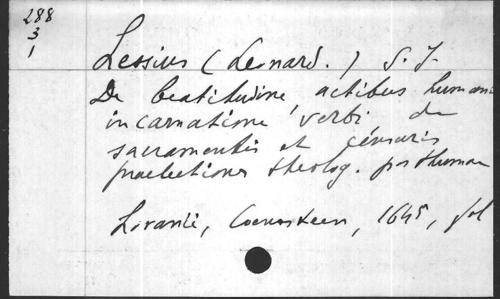 288
3
1
Lessius (Leonard.) S. J.
De beatitudine, actibus humani
incarnatione verbi de
sacramentis et censuris
praelectiones theolog. posthumae
Lovanii, Coenesteen, 1645, fol